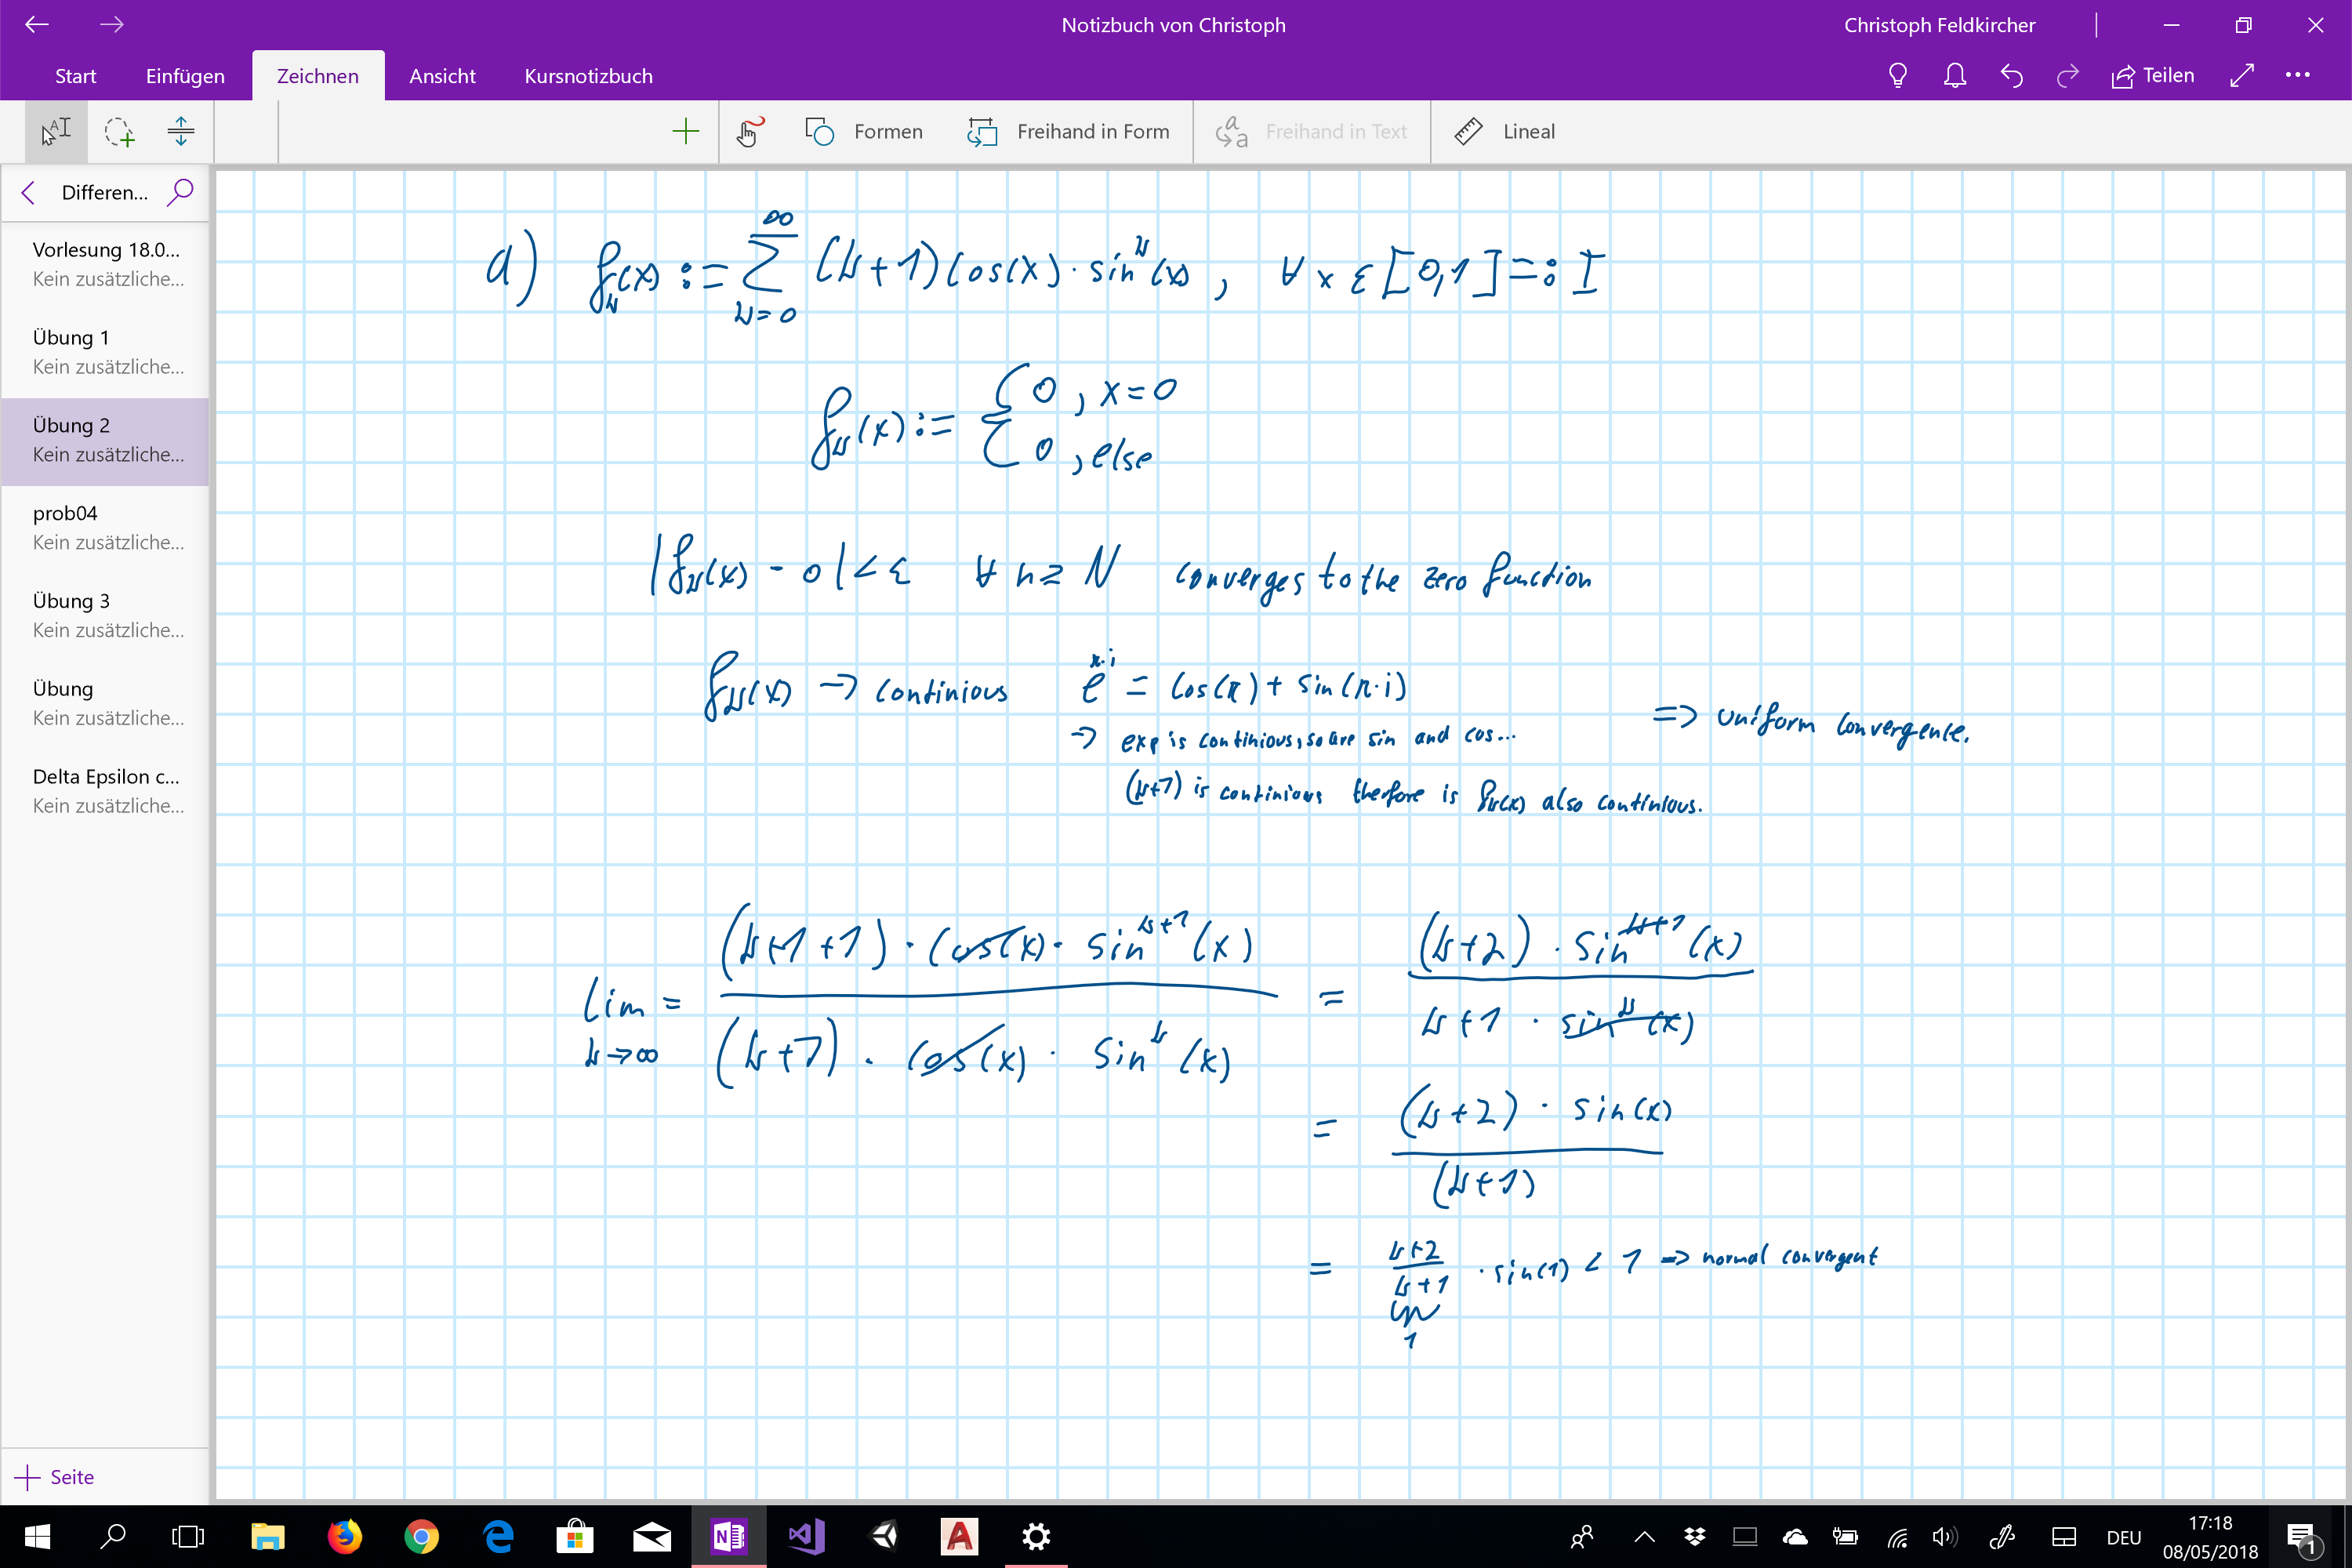 Notizbuch von Christoph
Christoph Feldkircher
Start Einfügen Zeichnen Ansicht Kursnotizbuch
Teilen
Formen Freihand in Form Freihand in Text Lineal
Differen...
Vorlesung 18.0...
Kein zusätzliche...
Übung 1
Kein zusätzliche...
Übung 2
Kein zusätzliche...
prob04
Kein zusätzliche...
Übung 3
Kein zusätzliche...
Übung
Kein zusätzliche...
Delta Epsilon c...
Kein zusätzliche...
Seite
d) f_k(x) := ∑_{k=0}^{∞} (k+1) cos(x) · sin^k(x), ∀ x ε [0,1] =: I
f_k(x) := { 0, x=0
0, else
|f_k(x) - 0| < ε ∀ n ≥ N converges to the zero function
f_k(x) → continious e^{x·i} = cos(x) + sin(x·i)
→ exp is continious, so are sin and cos...
⇒ uniform convergente.
(k+1) is continious therfore is f_k(x) also continious.
lim_{k→∞} = ((k+1+1) · cos(x) · sin^{k+1}(x)) / ((k+1) · cos(x) · sin^k(x)) = ((k+2) · sin^{k+1}(x)) / (k+1 · sin^k(x))
= ((k+2) · sin(x)) / (k+1)
= (k+2)/(k+1) · sin(1) < 1 ⇒ normal convergent
1
DEU
17:18
08/05/2018
1